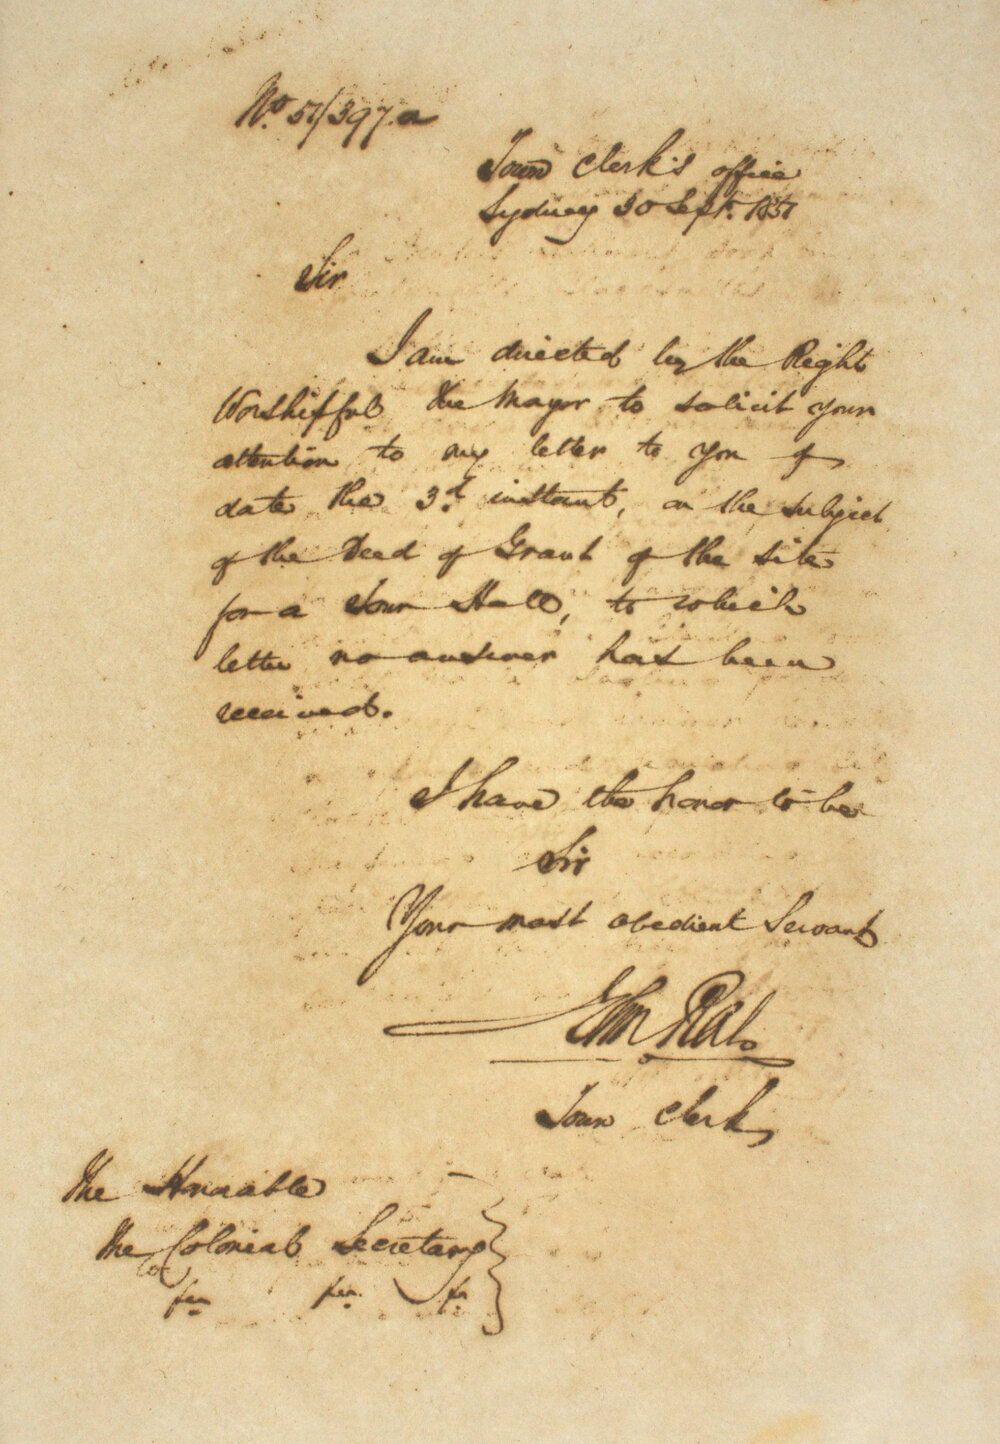 No. 51/397.a
Town Clerk's office
Sydney 30 Sept. 1851
Sir
I am directed by the Right
Worshipful the Mayor to solicit your
attention to my letter to you of
date the 3d instant, on the subject
of the Deed of Grant of the site
for a Town Hall, to which
letter no answer has been
received.
I have the honor to be
Sir
Your most obedient Servant
Town Clerk
The Honorable
the Colonial Secretary